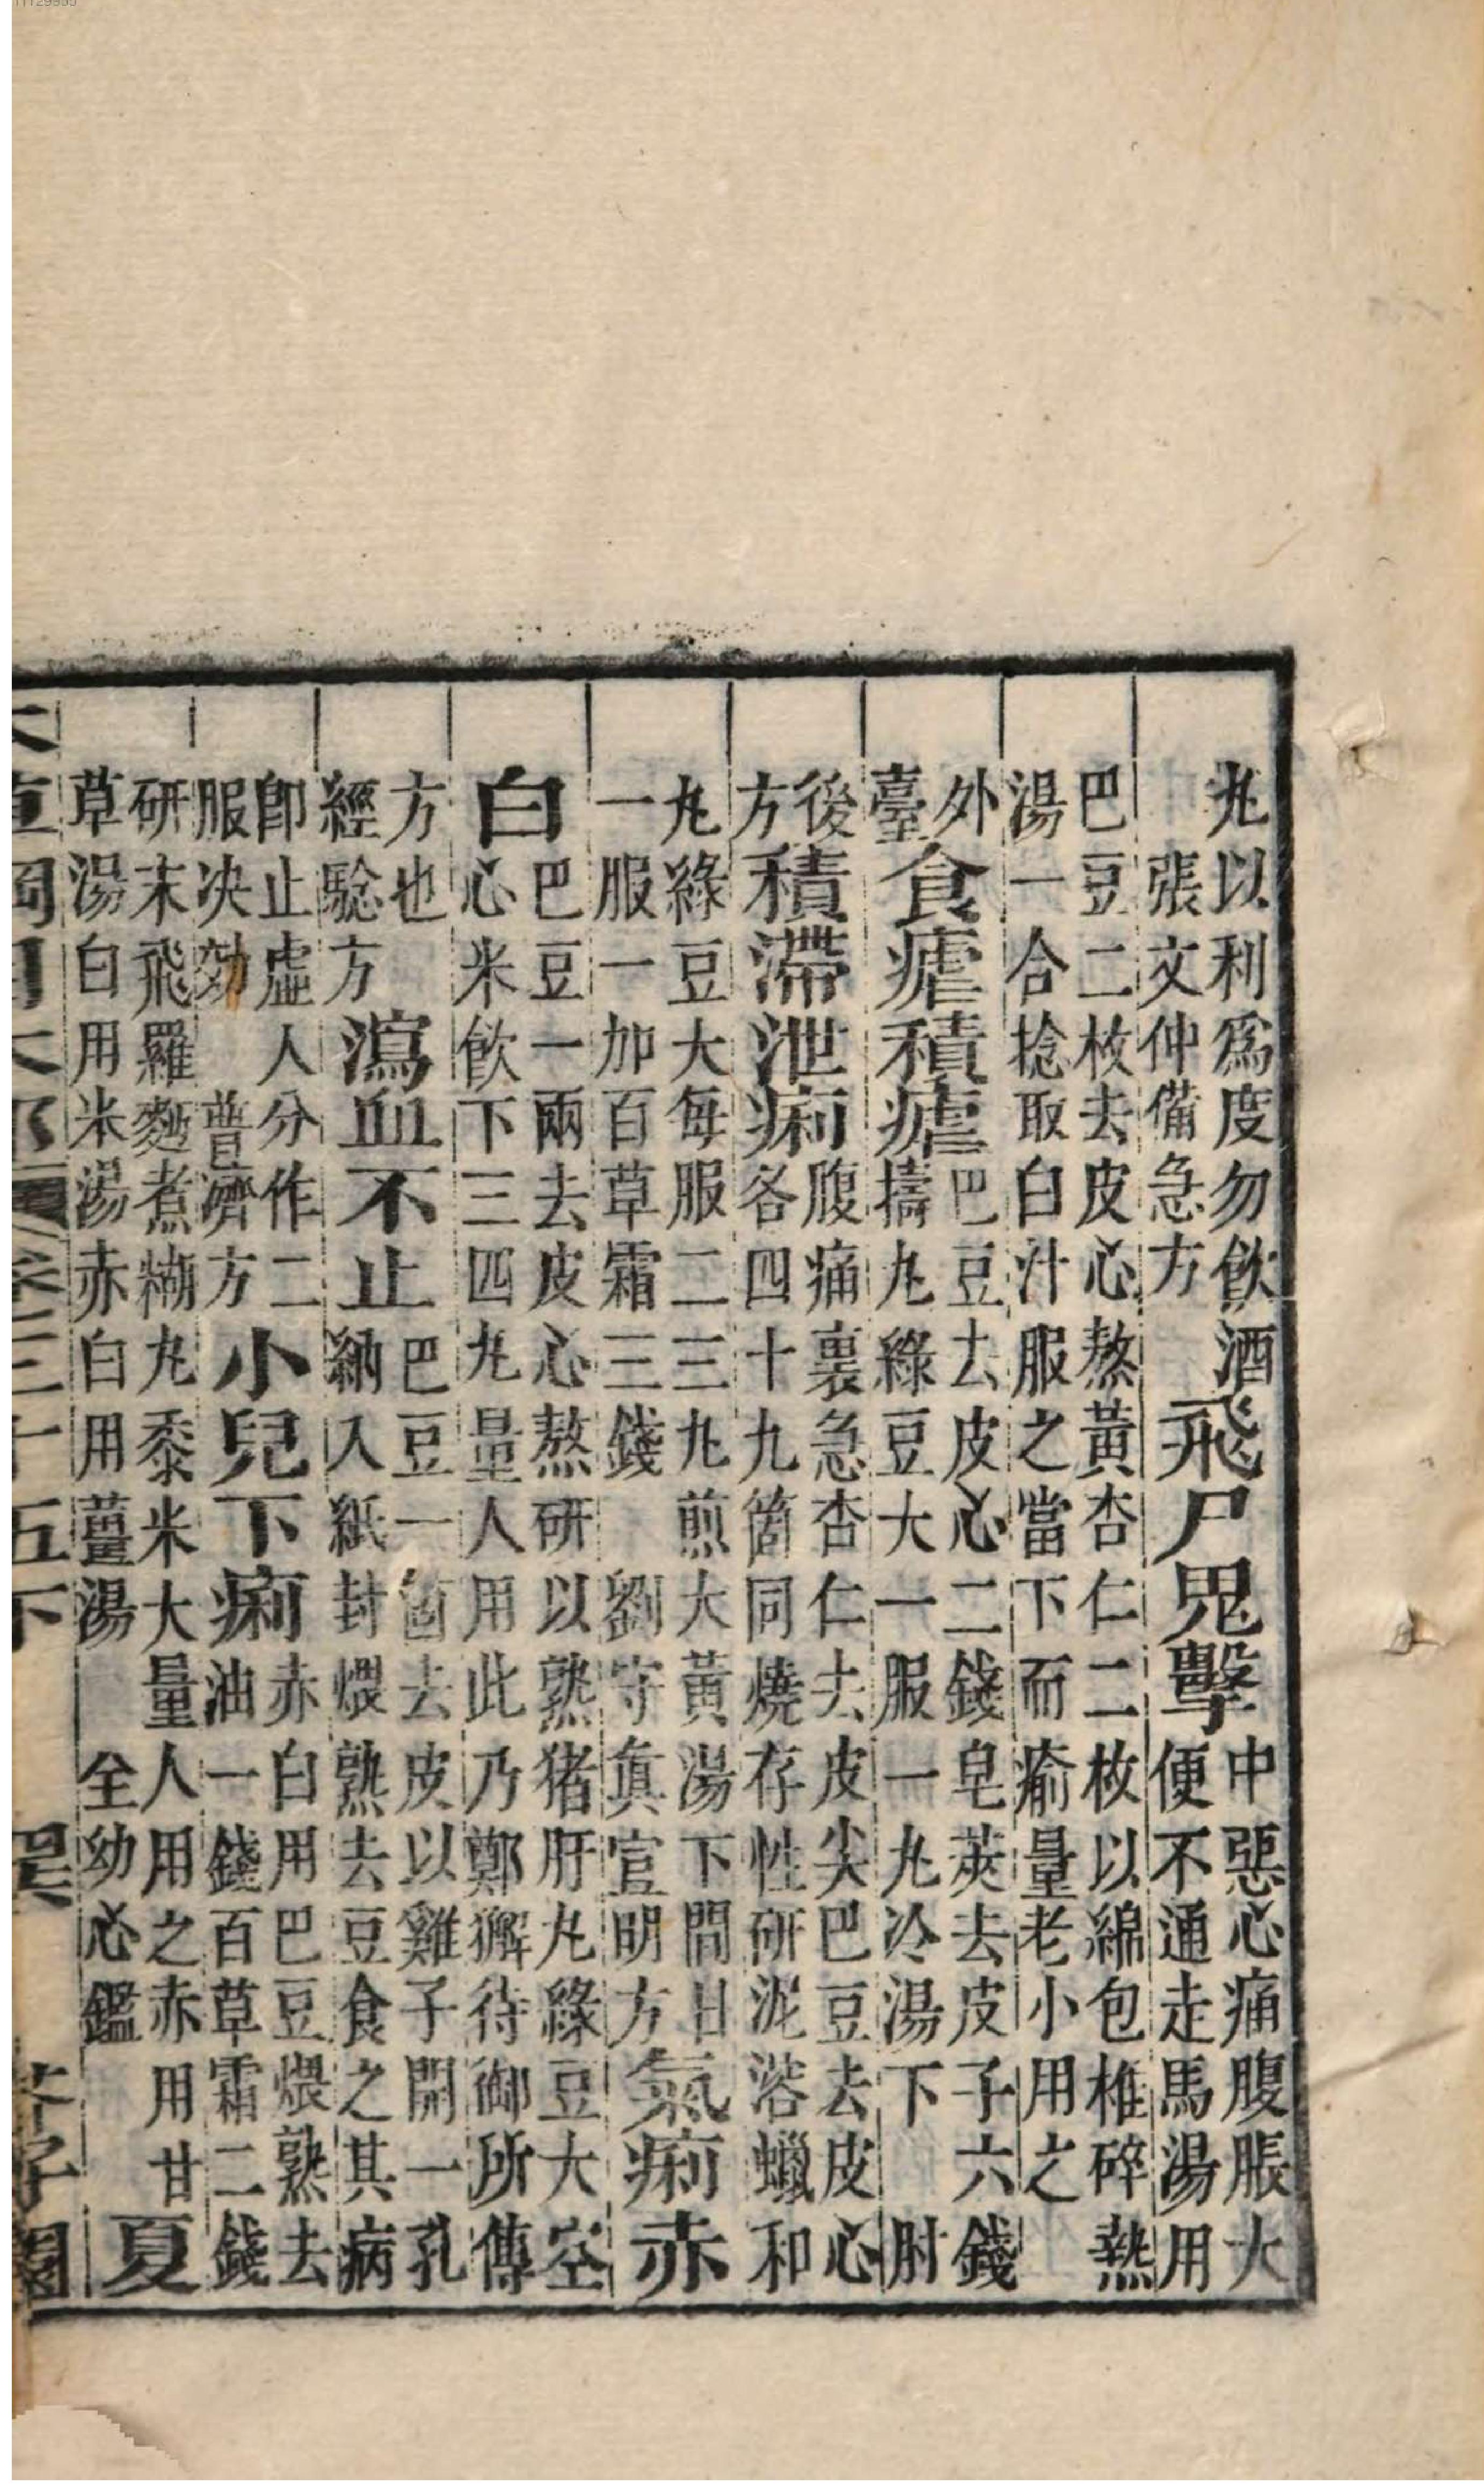 丸以利爲度勿飲酒張文仲備急方飛尸鬼擊中惡心痛腹脹大便不通走馬湯用
巴豆二枚去皮心熬黃杏仁二枚以綿包椎碎熱湯一合捻取白汁服之當下而瘉量老小用之
外臺食瘧積瘧巴豆去皮心二錢皂莢去皮子六錢擣丸綠豆大一服一丸冷湯下肘
後方積滯泄痢腹痛裏急杏仁去皮尖巴豆去皮心各四十九箇同燒存性研泥溶蠟和
丸綠豆大每服二三丸煎大黃湯下間日一服一加百草霜三錢劉守眞宣明方氣痢赤
白巴豆一兩去皮心熬研以熟猪肝丸綠豆大空心米飲下三四丸量人用此乃鄭獬待御所傳
方也經騐方瀉血不止巴豆一箇去皮以雞子開一孔納入紙封煨熟去豆食之其病
卽止虛人分作二服决効普濟方小兒下痢赤白用巴豆煨熟去油一錢百草霜二錢
研末飛羅麪煮糊丸黍米大量人用之赤用甘草湯白用米湯赤白用薑湯全幼心鑑夏
本草綱目木部卷三十五下芥子園